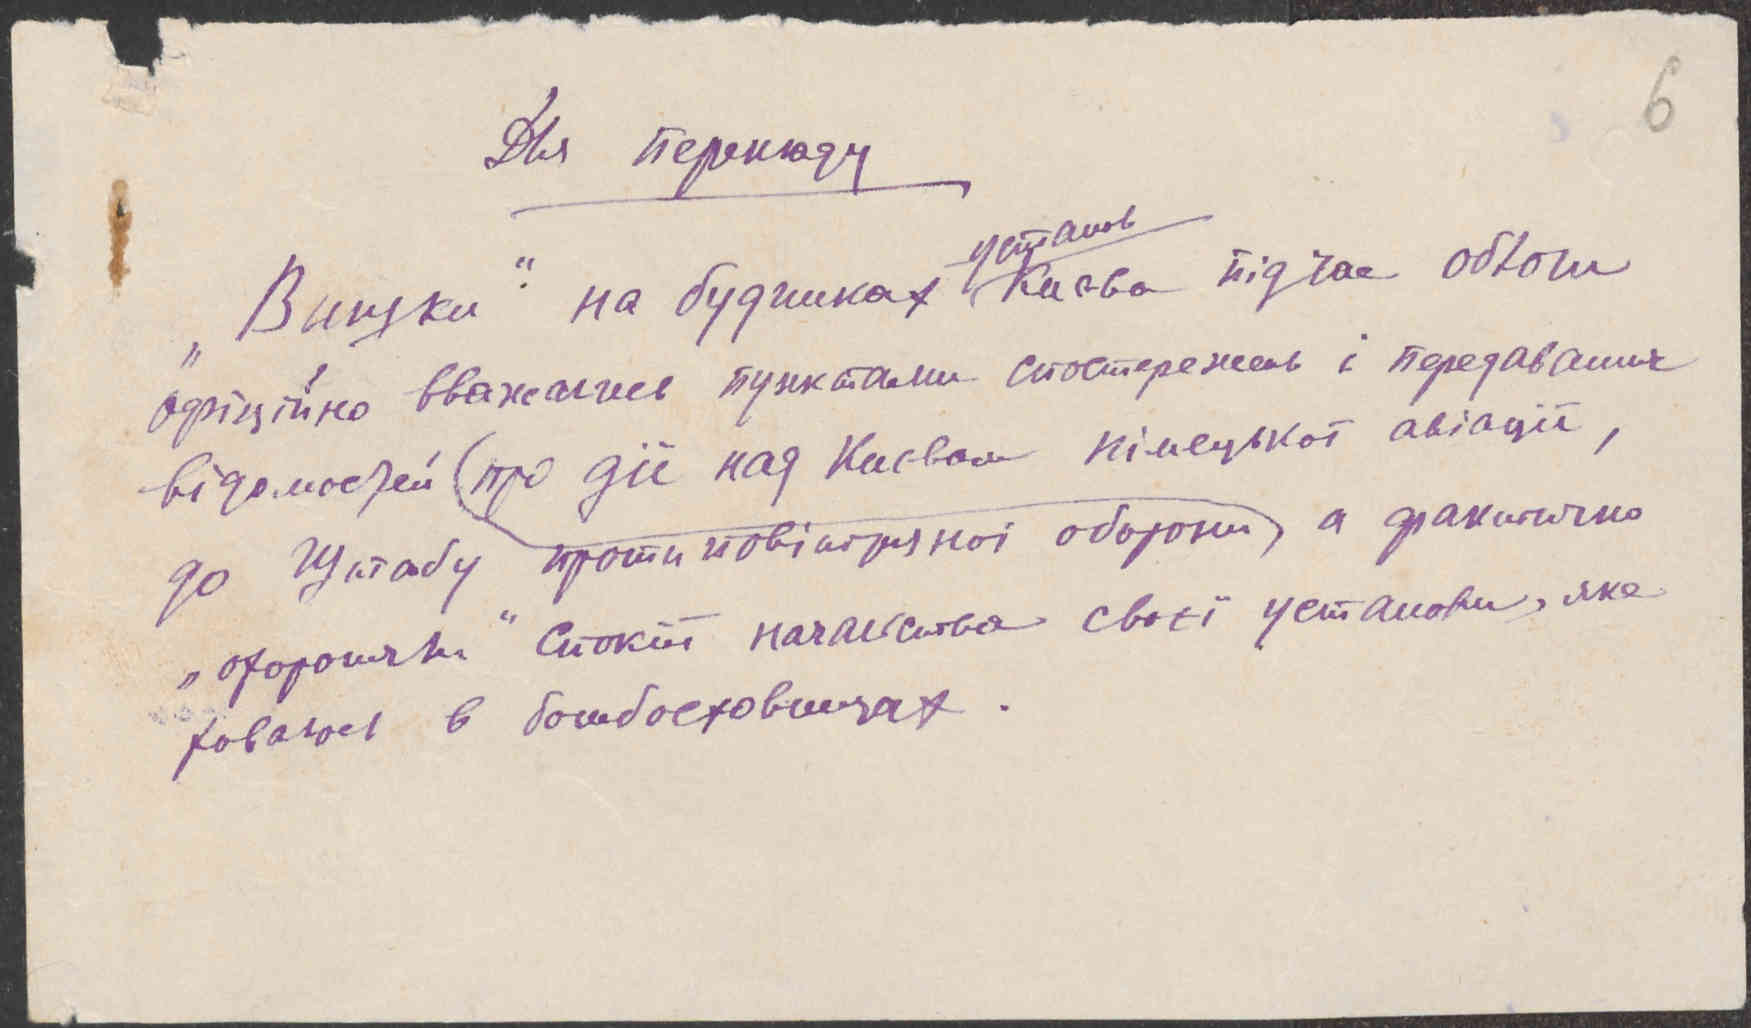 6
Для перекладу
установ
„Вишки“ на будинках Києва під час облоги
офіційно вважались пунктами спостережень і передавання
відомостей (про дії над Києвом німецької авіації,
до Штабу протиповітряної оборони, а фактично
„охороняли“ спокій начальства своєї установи, яке
ховалось в бомбосховищах.